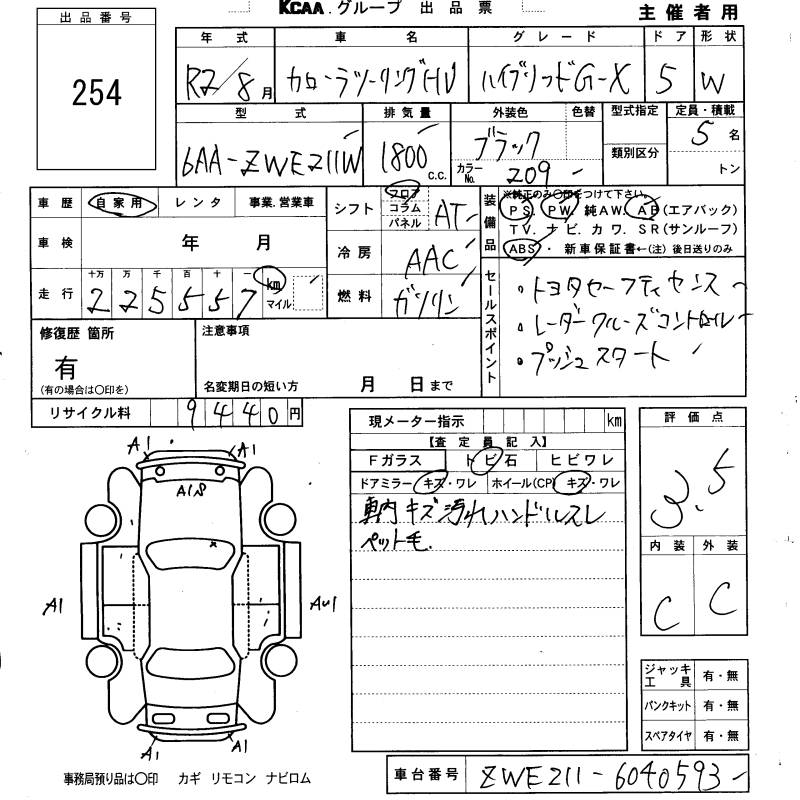 KCAA.グループ 出品票
主催者用
出品番号
254
年式 車名 グレード ドア 形状
R2/8月 カローラツーリングHV ハイブリッドG-X 5 W
型式 排気量 外装色 色替 型式指定 定員・積載
6AA-ZWE211W 1800 c.c. ブラック 5名
カラーNo. 209 類別区分 トン
車歴 自家用 レンタ 事業.営業車
車検 年 月
走行 十万 万 千 百 十 一
225557 km マイル
シフト フロア コラム パネル AT
冷房 AAC
燃料 ガソリン
装備品
※純正のみ○印をつけて下さい。
PS. PW. 純AW. AB(エアバック)
TV. ナビ. カワ. SR(サンルーフ)
ABS・ 新車保証書←(注) 後日送りのみ
セールスポイント
・トヨタセーフティセンス
・レーダークルーズコントロール
・プッシュスタート
修復歴 箇所
有
(有の場合は○印を)
注意事項
名変期日の短い方 月 日まで
リサイクル料 9440円
現メーター指示 km
【査定員記入】
Fガラス トビ石 ヒビワレ
ドアミラー キズ・ワレ ホイール(CP) キズ・ワレ
車内キズ汚れハンドルスレ
ペット毛.
評価点
3.5
内装 外装
C C
ジャッキ工具 有・無
パンクキット 有・無
スペアタイヤ 有・無
A1 A1
A1 AU1
A1 A1
事務局預り品は○印 カギ リモコン ナビロム
車台番号 ZWE211-6040593